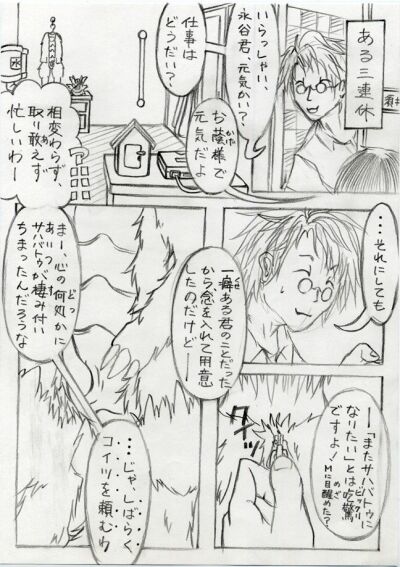 ある三連休
いらっしゃい、
永谷君、元気かい？
お蔭様で
かげ
元気だよ
仕事は
どうだい？
相変わらず、
取り敢えず
あ
忙しいわー
・・・それにしても
一癖ある君のことだった
くせ
から念を入れて用意
したのだけど
まー、心の何処かに
どっ
あいつ
サハバトゥが棲み付い
す
ちまったんだろうな
―「またサハバトゥに
なりたい」とは吃驚
ビックリ
ですよ！
Mに目醒めた？
めざ
グッ
・・・じゃ、しばらく
コイツを頼むわ